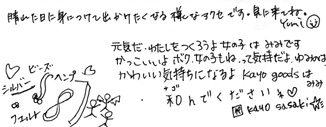 晴れた日に身につけて出かけたくなる様なアクセです。見に来てね。
Yumi
元気だ・わたしをつくろうよ女の子は みみです
かっこいいよ ボク、女の子もね、って気持だよ ゆみは
かわいい気持ちになるよ Kayo goods は みみ
ナゴ
和んでくださいネ
KAYO sasaki
ビーズ
シルバー
ヘンプ
フェルト